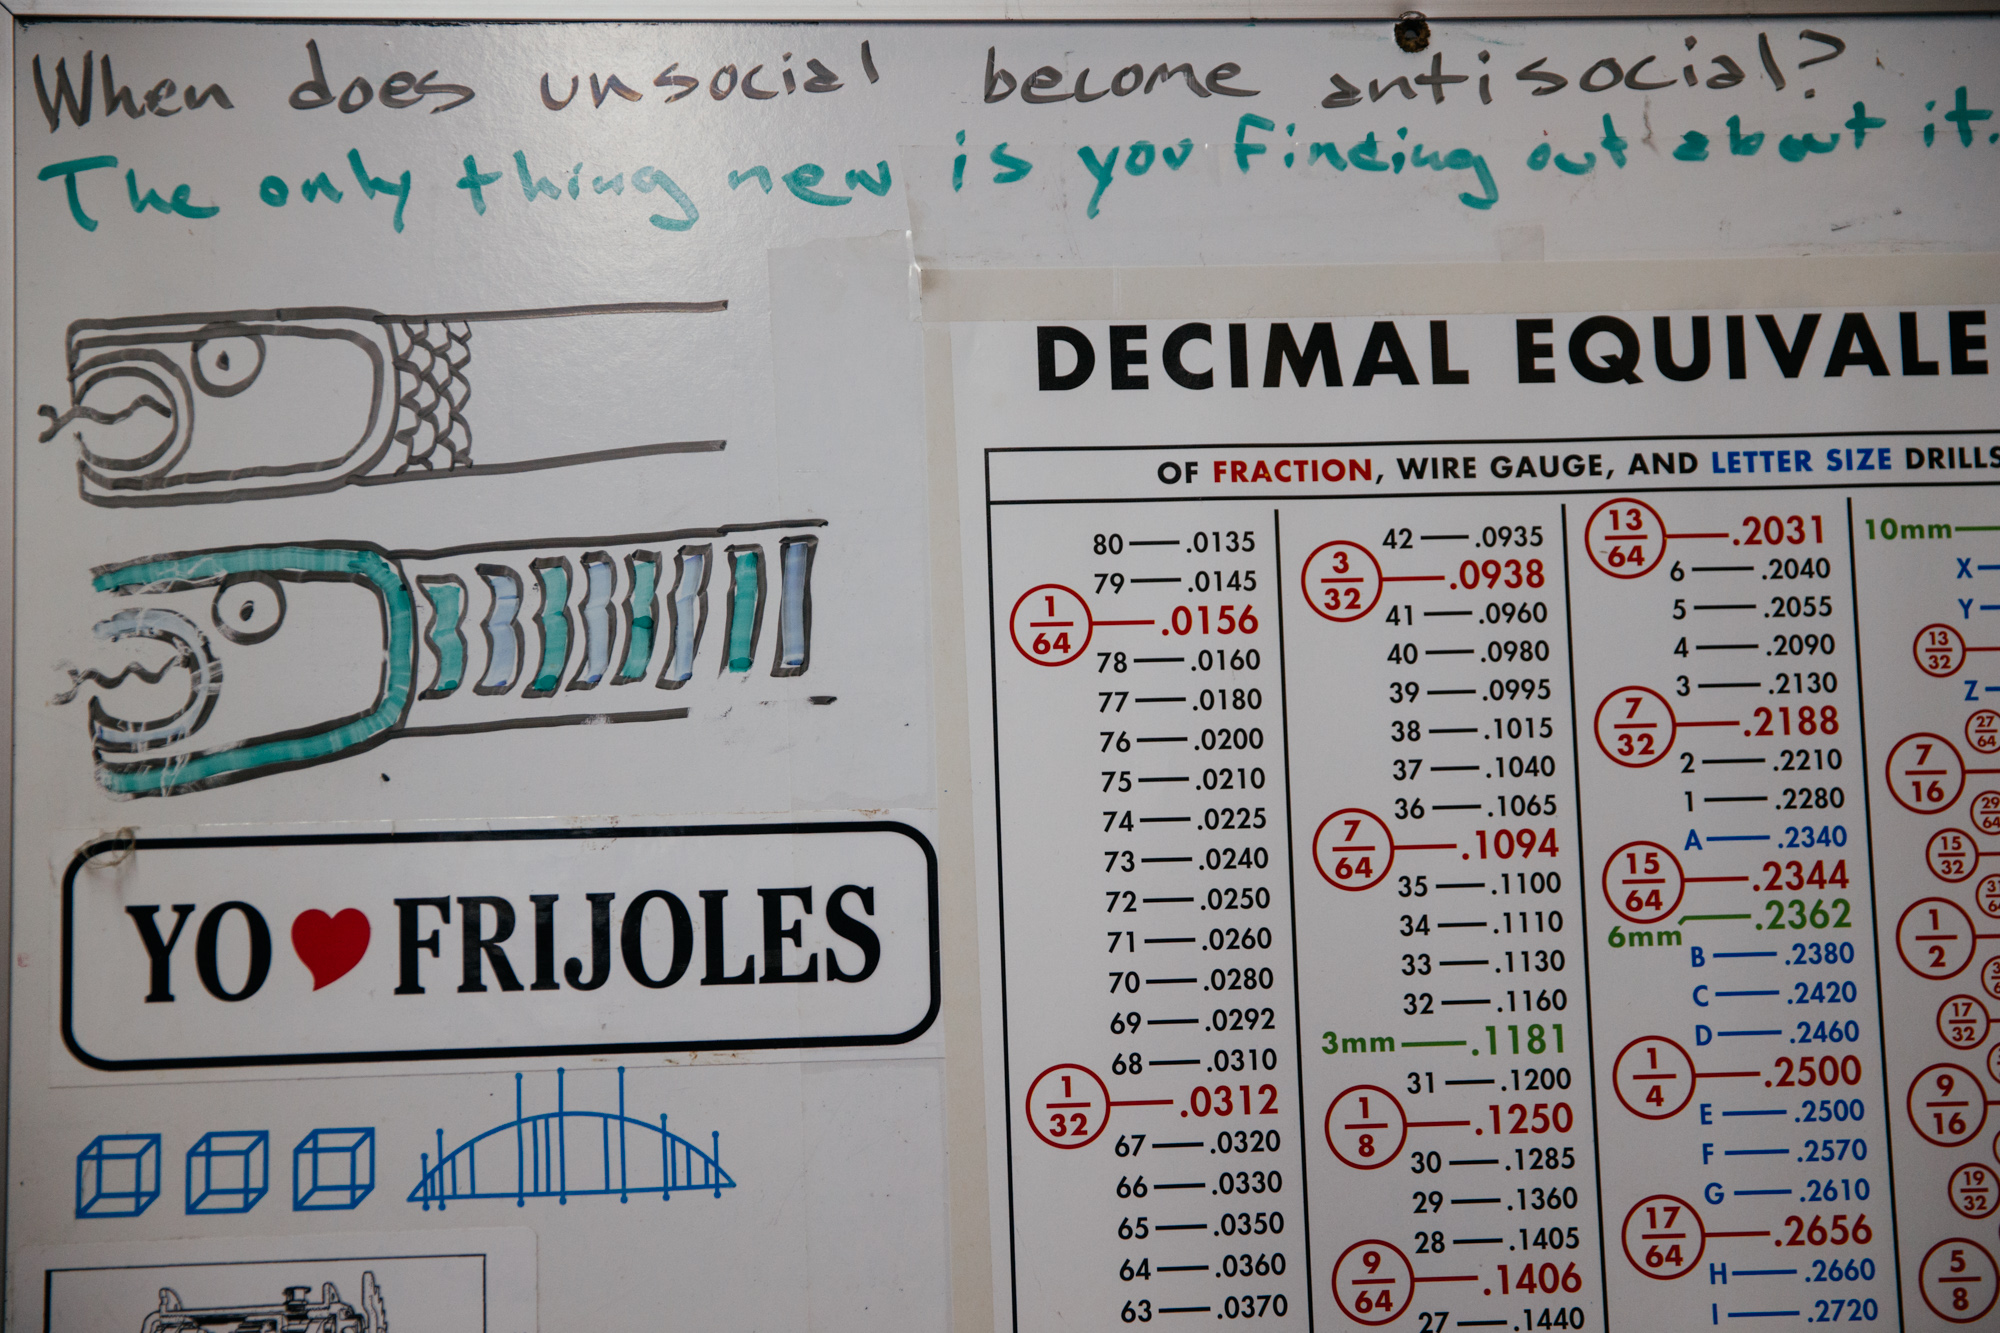 When does unsocial become antisocial?
The only thing new is you Finding out about it.
YO ♥ FRIJOLES
DECIMAL EQUIVALE
OF FRACTION, WIRE GAUGE, AND LETTER SIZE DRILLS
80 .0135
79 .0145
1/64 .0156
78 .0160
77 .0180
76 .0200
75 .0210
74 .0225
73 .0240
72 .0250
71 .0260
70 .0280
69 .0292
68 .0310
1/32 .0312
67 .0320
66 .0330
65 .0350
64 .0360
63 .0370
42 .0935
3/32 .0938
41 .0960
40 .0980
39 .0995
38 .1015
37 .1040
36 .1065
7/64 .1094
35 .1100
34 .1110
33 .1130
32 .1160
3mm .1181
31 .1200
1/8 .1250
30 .1285
29 .1360
28 .1405
9/64 .1406
27 .1440
13/64 .2031
6 .2040
5 .2055
4 .2090
3 .2130
7/32 .2188
2 .2210
1 .2280
A .2340
15/64 .2344
6mm .2362
B .2380
C .2420
D .2460
1/4 .2500
E .2500
F .2570
G .2610
17/64 .2656
H .2660
I .2720
10mm
X
Y
13/32
Z
27/64
7/16
29/64
15/32
1/2
17/32
9/16
19/32
5/8